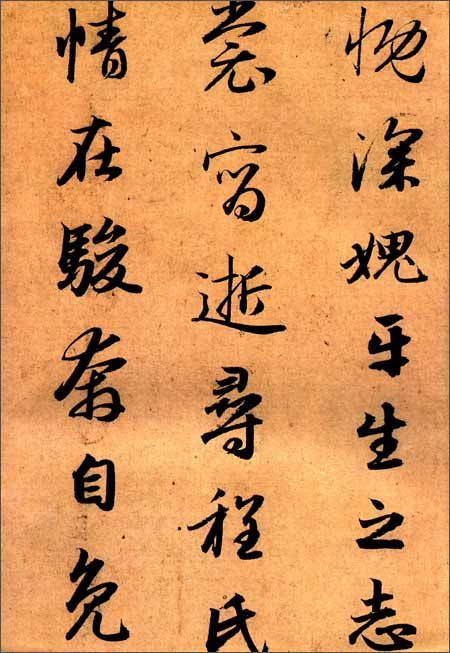 慨深愧平生之志
裳宵逝尋程氏
情在駿奔自免